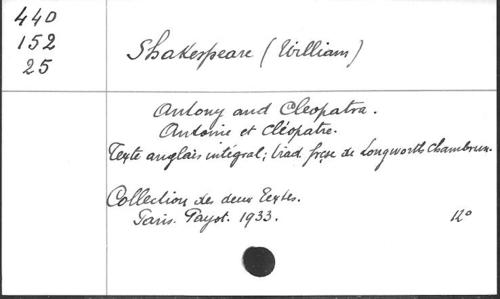 440
152
25
Shakespeare (William)
Antony and Cleopatra.
Antoine et Cléopatre.
Texte anglais intégral; trad. frçse de Longworth Chambrun.
Collection des deux Textes.
Paris. Payot. 1933.
12°